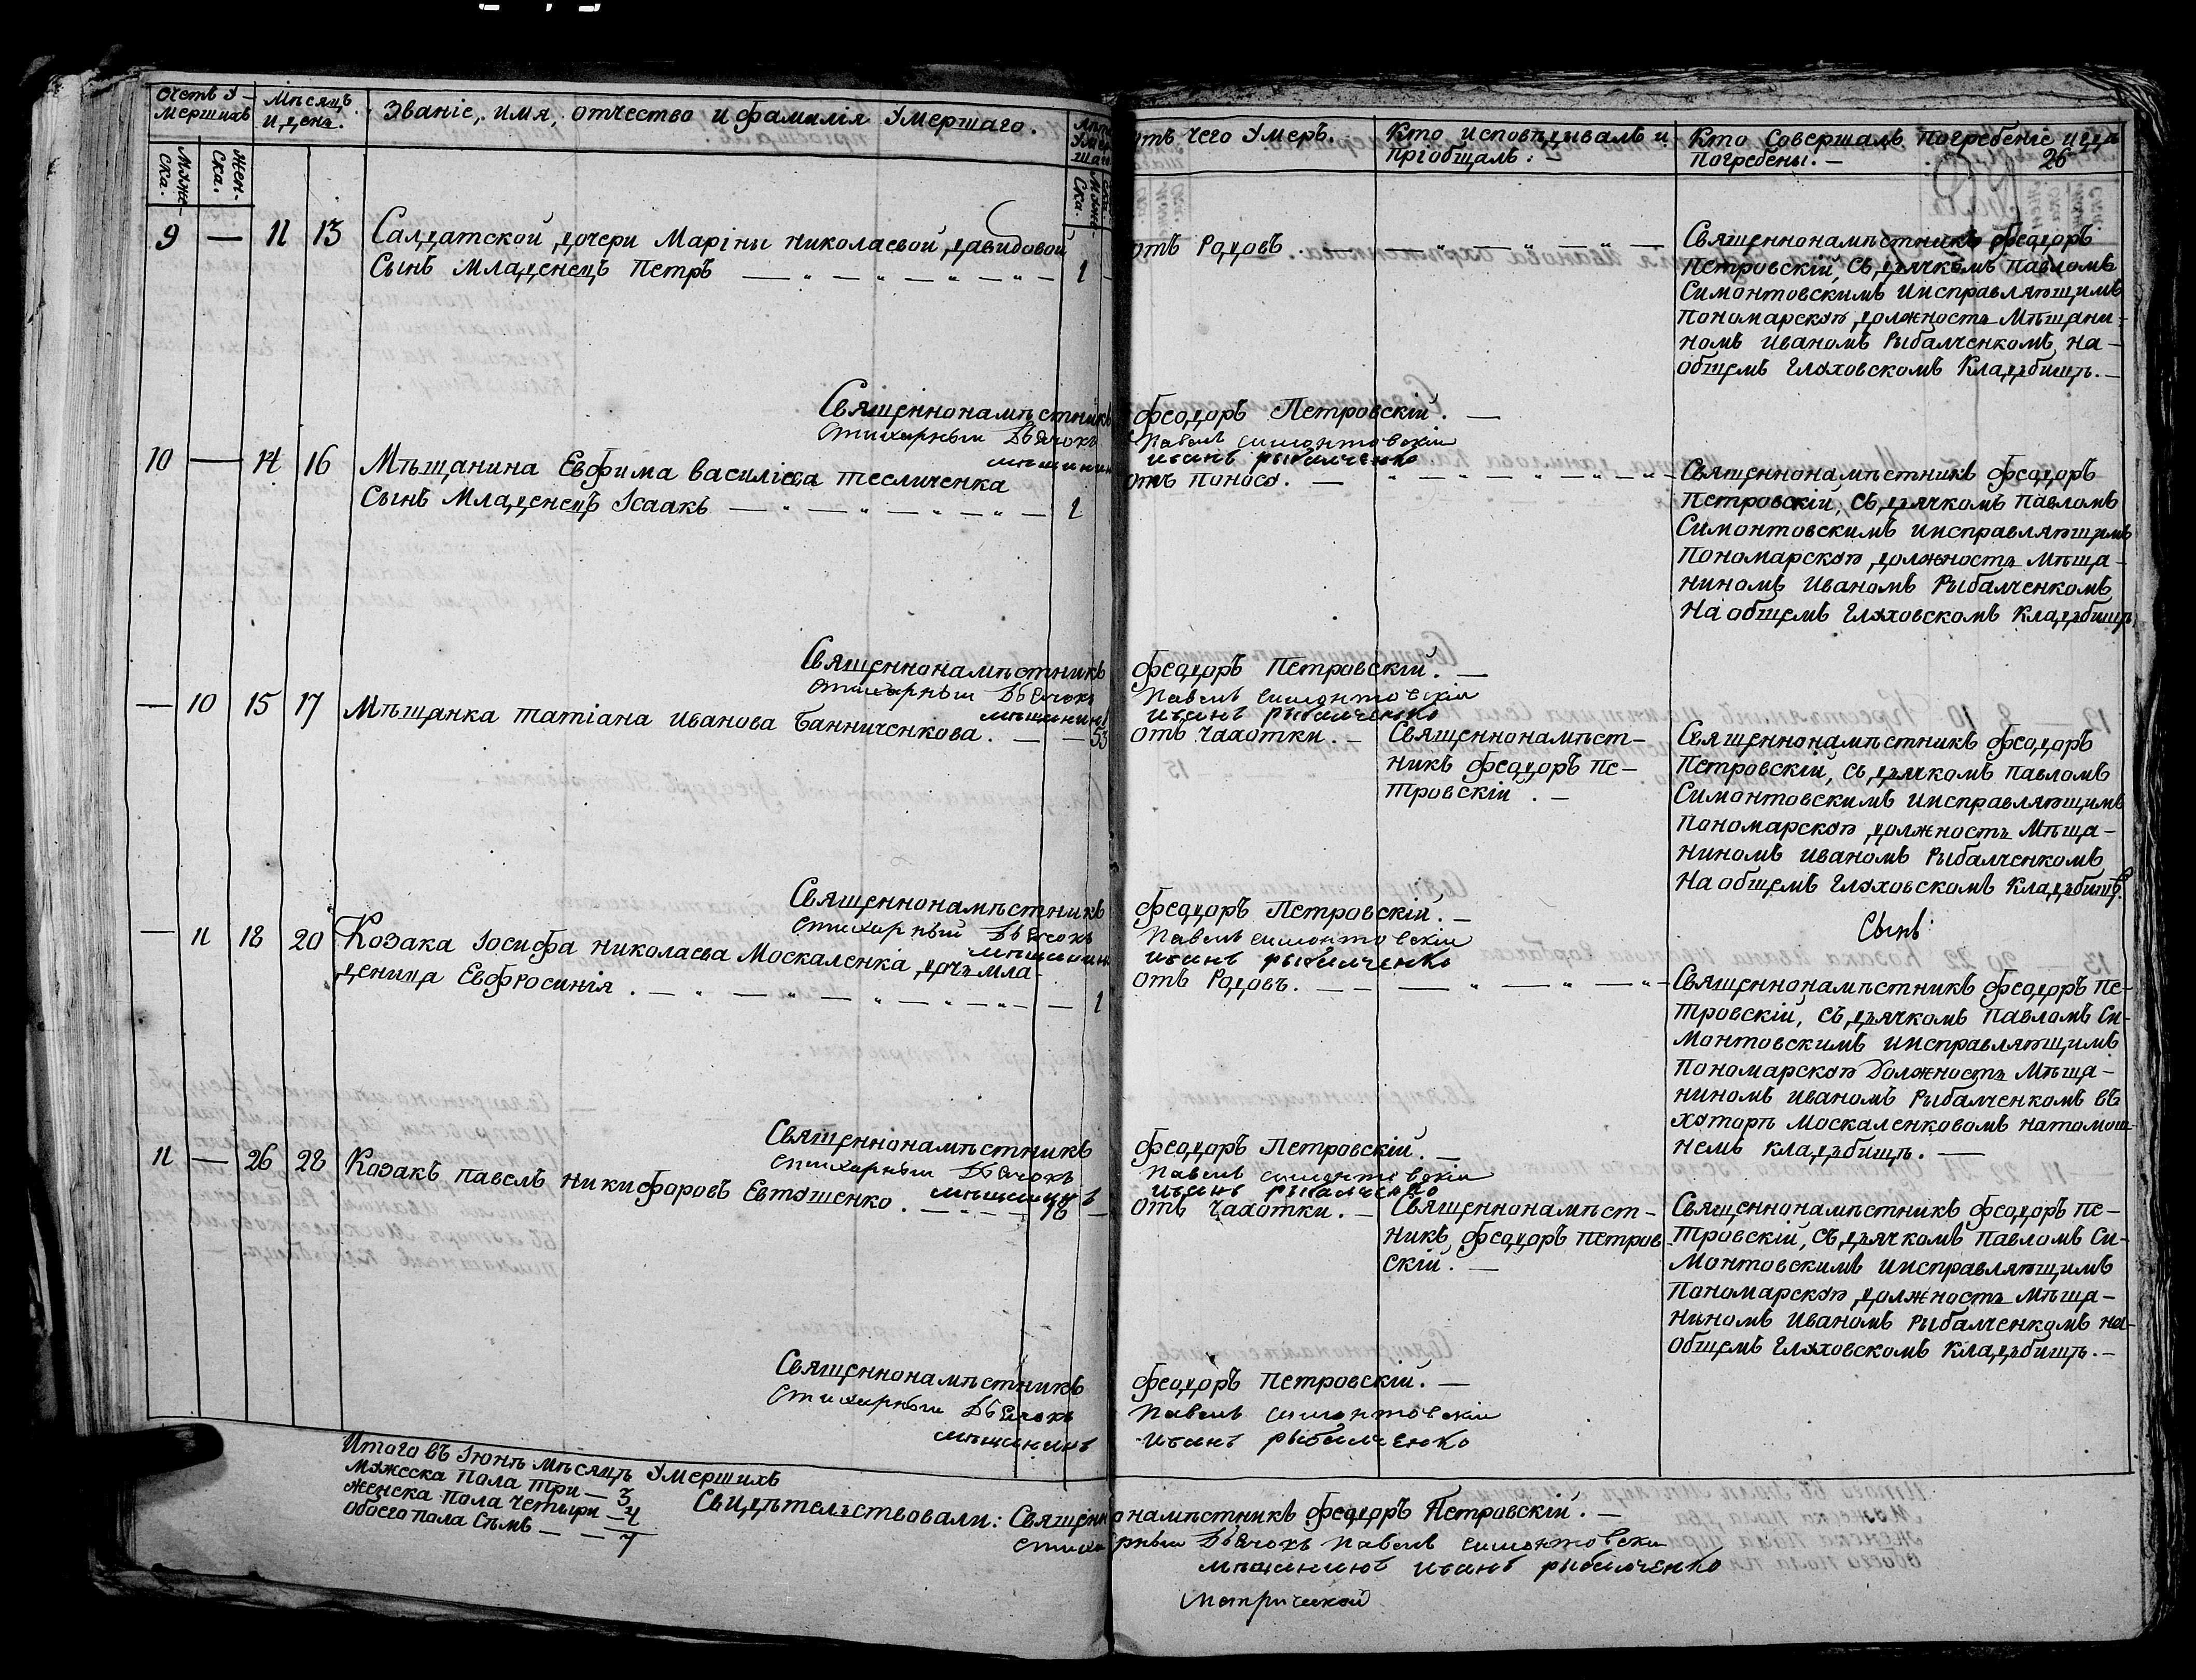 Счетъ У-
мершихъ
Мѣсяцъ
и день.
Званіе, имя, отчество и фамилія Умершаго.
Муже-
ска.
Жен-
ска.
9 — 11 13 Салдатской дочери Маріны Николаевой Давидовой
Сынъ Младенецъ Петръ — 1
Священнонамѣстникъ
Стихарный Дьячокъ
мѣщанинъ
10 — 14 16 Мѣщанина Евфима Василіева Тесличенка
Сынъ Младенецъ Ісаакъ — 1
Священнонамѣстникъ
Стихарный Дьячокъ
мѣщанинъ
— 10 15 17 Мѣщанка Татіана Иванова Банниченкова. — 53
Священнонамѣстникъ
Стихарный Дьячокъ
мѣщанинъ
— 11 18 20 Козака Іосифа Николаева Москаленка дочь мла-
деница Евфросинія. — 1
Священнонамѣстникъ
Стихарный Дьячокъ
мѣщанинъ
11 — 26 28 Козакъ Павелъ Никифоровъ Евтушенко. —
Священнонамѣстникъ
Стихарный Дьячокъ
мѣщанинъ
Итого въ Іюнѣ мѣсяцѣ Умершихъ
Мужеска пола три — 3
Женска пола четыри — 4
Обоего пола Сѣмъ — 7
отъ чего Умеръ.
Кто исповѣдывалъ и
пріобщалъ: —
Кто Совершалъ погребеніе и гдѣ
погребены. —
26
отъ Родовъ. —
Священнонамѣстникъ Феодоръ
Петровскій, съ дьячкомъ Павломъ
Симонтовскимъ и исправляющимъ
Пономарскую должность Мѣщани-
номъ Иваномъ Рыбалченкомъ на-
общемъ Глуховскомъ Кладьбищѣ. —
Феодоръ Петровскій. —
Павелъ Симонтовскій
Иванъ Рыбалченко
отъ Поносу. —
Священнонамѣстникъ Феодоръ
Петровскій, съ дьячкомъ Павломъ
Симонтовскимъ и исправляющимъ
Пономарскую должность Мѣща-
ниномъ Иваномъ Рыбалченкомъ
На общемъ Глуховскомъ Кладьбищѣ
Феодоръ Петровскій. —
Павелъ Симонтовскій
Иванъ Рыбалченко
отъ Чахотки. —
Священнонамѣст-
никъ Феодоръ Пе-
тровскій. —
Священнонамѣстникъ Феодоръ
Петровскій, съ дьячкомъ Павломъ
Симонтовскимъ и исправляющимъ
Пономарскую должность Мѣща-
ниномъ Иваномъ Рыбалченкомъ
На общемъ Глуховскомъ Кладьбищѣ.
Феодоръ Петровскій. —
Павелъ Симонтовскій
Иванъ Рыбалченко
Сынъ
отъ Родовъ. —
Священнонамѣстникъ Феодоръ Пе-
тровскій, съ дьячкомъ Павломъ Си-
монтовскимъ и исправляющимъ
Пономарскую Должность Мѣща-
ниномъ Иваномъ Рыбалченкомъ въ
хуторѣ Москаленковомъ на томош-
немъ кладьбищѣ. —
Феодоръ Петровскій. —
Павелъ Симонтовскій
Иванъ Рыбалченко
отъ Чахотки. —
Священнонамѣст-
никъ Феодоръ Петров-
скій. —
Священнонамѣстникъ Феодоръ Пе-
тровскій, съ дьячкомъ Павломъ Си-
монтовскимъ и исправляющимъ
Пономарскую должность Мѣща-
ниномъ Иваномъ Рыбалченкомъ на-
общемъ Глуховскомъ Кладьбищѣ. —
Феодоръ Петровскій. —
Павелъ Симонтовскій
Иванъ Рыбалченко
Свидѣтельствовали: Священнонамѣстникъ Феодоръ Петровскій. —
Стихарный Дьячокъ Павелъ Симонтовски
мѣщанинъ Иванъ Рыбалченко